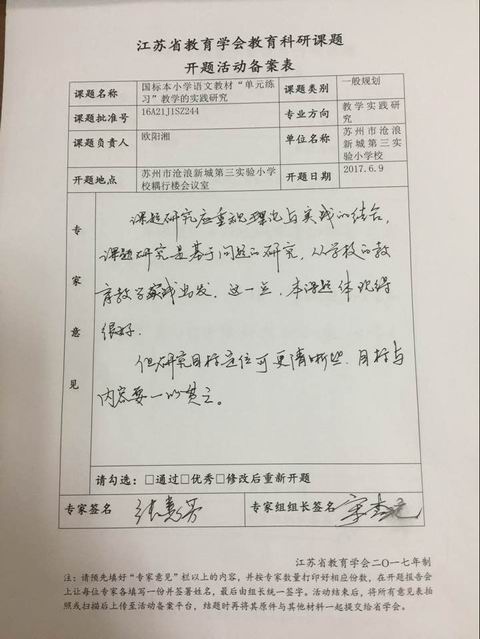 江苏省教育学会教育科研课题
开题活动备案表
课题名称
国标本小学语文教材“单元练
习”教学的实践研究
课题类别
一般规划
课题批准号
16A21J1SZ244
专业方向
教学实践研
究
课题负责人
欧阳湘
单位名称
苏州市沧浪
新城第三实
验小学校
开题地点
苏州市沧浪新城第三实验小学
校耦行楼会议室
开题日期
2017.6.9
专家意见
课题研究应重视理论与实践的结合,
课题研究是基于问题的研究,从学校的教
育教学实践出发,这一点,本课题体现得
很好.
但研究目标定位可更清晰些.目标与
内容要一以贯之。
请勾选:□通过□优秀□修改后重新开题
专家签名
专家组组长签名
江苏省教育学会二〇一七年制
注:请预先填好“专家意见”栏以上的内容,并按专家数量打印好相应份数,在开题报告会
上让每位专家各填写一份并签署姓名,最后由组长统一签字。活动结束后,将所有意见表拍
照或扫描后上传至活动备案平台,结题时再将其原件与其他材料一起提交给省学会。